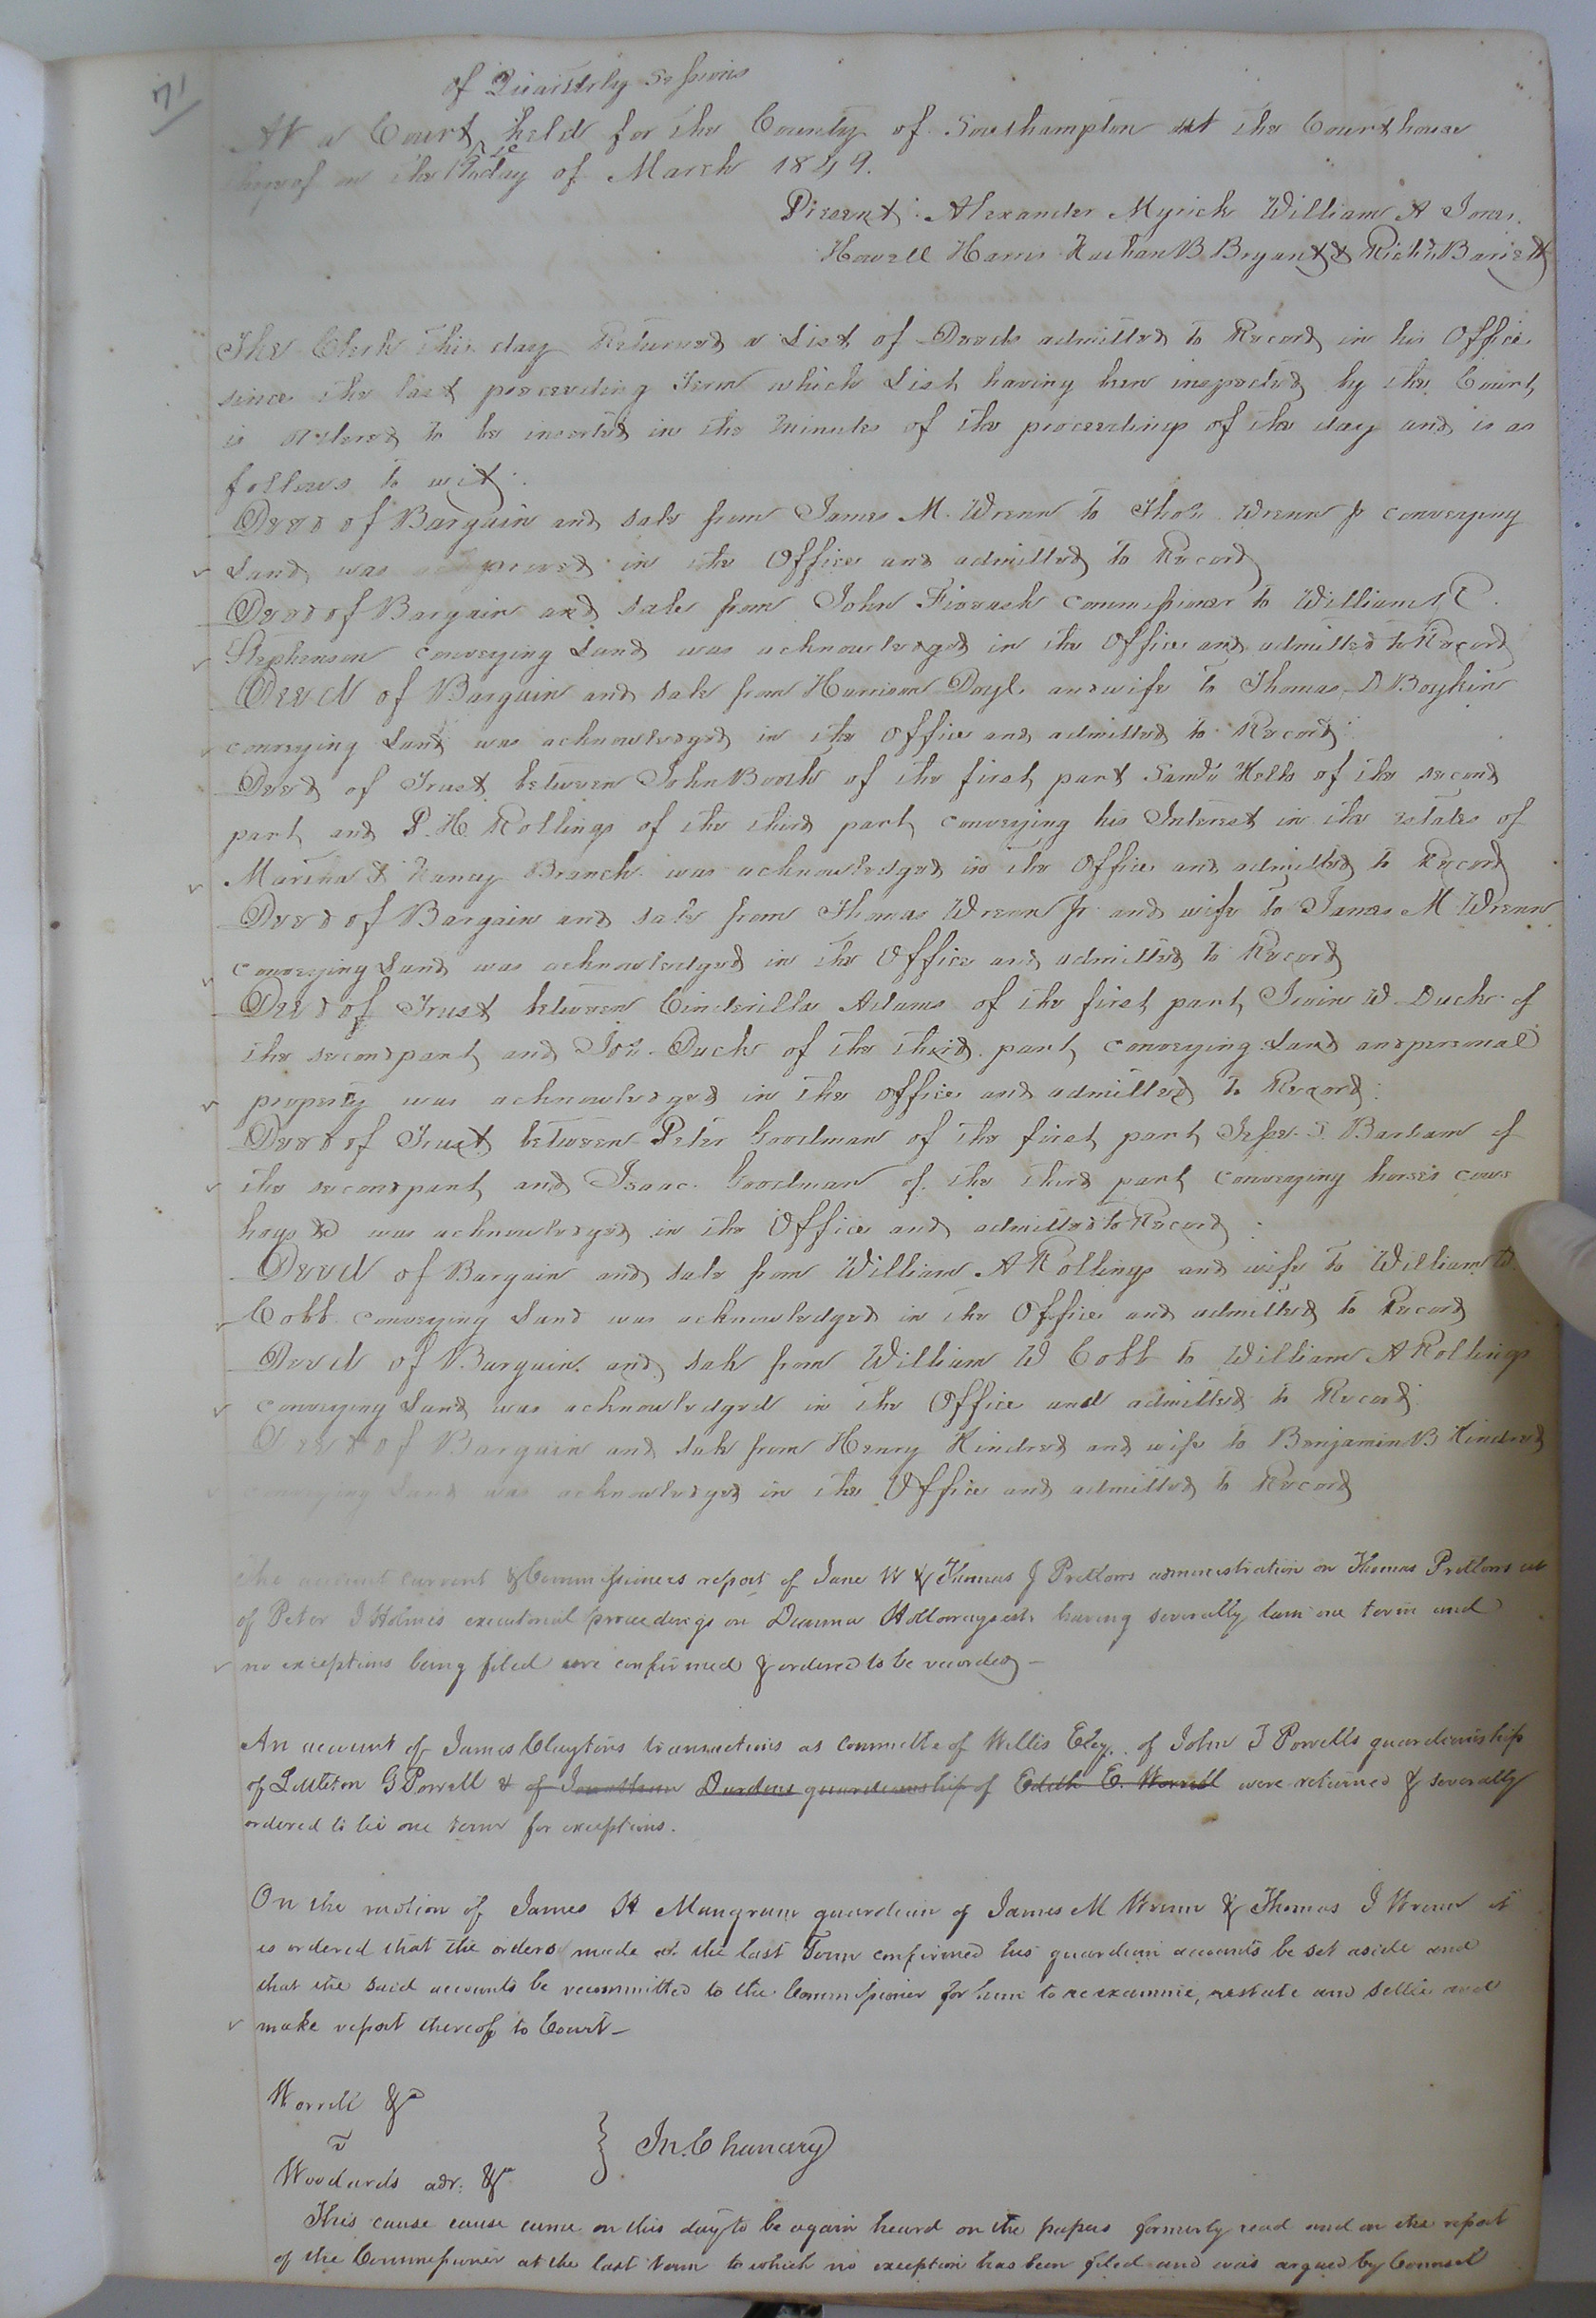 71
of Quarterly Sessions
At a Court held for the County of Southampton at the Courthouse
thereof on the day of March 1849.
Present: Alexander Myrick William A Jones
Howell Harris Nathan B Bryant & Richd Barrett
The Clerk this day Returned a List of Deeds admitted to Record in his Office
since the last preceeding Term which List having been inspected by the Court
is ordered to be inserted in the minutes of the proceedings of the day and is as
follows to wit:
Deed of Bargain and sale from James M. Wrenn to Thos. Wrenn Jr conveying
Land was proved in the Office and admitted to Record
Deed of Bargain and sale from John commissioner to William R.
Stephenson conveying Land was acknowledged in the Office and admitted to Record
Deed of Bargain and sale from Harrison Doyl and wife to Thomas D Boykin
conveying Land was acknowledged in the Office and admitted to Record:
Deed of Trust between John Booth of the first part of the second
part and P. H. Rollings of the third part conveying his Interest in the estates of
& Nancy Branch was acknowledged in the Office and admitted to Record
Deed of Bargain and sale from Thomas Wrenn Jr. and wife to James M Wrenn
conveying Land was acknowledged in the Office and admitted to Record
Deed of Trust between Cinderilla Adams of the first part, Irvin W Duck of
the second part and Jos. Duck of the third part conveying Land and personal
property was acknowledged in the office and admitted to Record:
Deed of Trust between Peter Goodman of the first part Jesse Barham of
the second part and Isaac Goodman of the third part conveying horses cows
hogs &c was acknowledged in the Office and admitted to Record:
Deed of Bargain and sale from William A Rollings and wife to William W.
Cobb conveying Land was acknowledged in the Office and admitted to Record
Deed of Bargain and sale from William W Cobb to William A Rollings
conveying Land was acknowledged in the Office and admitted to Record.
Deed of Bargain and sale from Henry Kindred and wife to Benjamin B Kindred
conveying Land was acknowledged in the Office and admitted to Record
The account current & Commissioners report of Jane W & Thomas J Pretlows administration on Thomas Pretlows est
of Peter J Holmes executorial proceedings on Holloways est. having severally lain one term and
no exceptions being filed are confirmed & ordered to be recorded—
An account of James Claytons transactions as committe of Willis Eley. of John J Powells guardianship
of Littleton G Powell & of Jonathan Dardens guardianship of Edith E. Worrell were returned & severally
ordered to lie one term for exceptions.
On the motion of James H Mangram guardian of James M Wrenn & Thomas J Wrenn it
is ordered that the orders made at the last Term confirmed his guardian accounts be set aside and
that the said accounts be recommitted to the Commissioner for him to reexamine, restate and settle and
make report thereof to Court—
Worrell &c
v
Woodards adr. &c
} In Chancery
This cause cause came on this day to be again heard on the papers formerly read and on the report
of the Commissioner at the last term to which no exception has been filed and was argued by Counsel